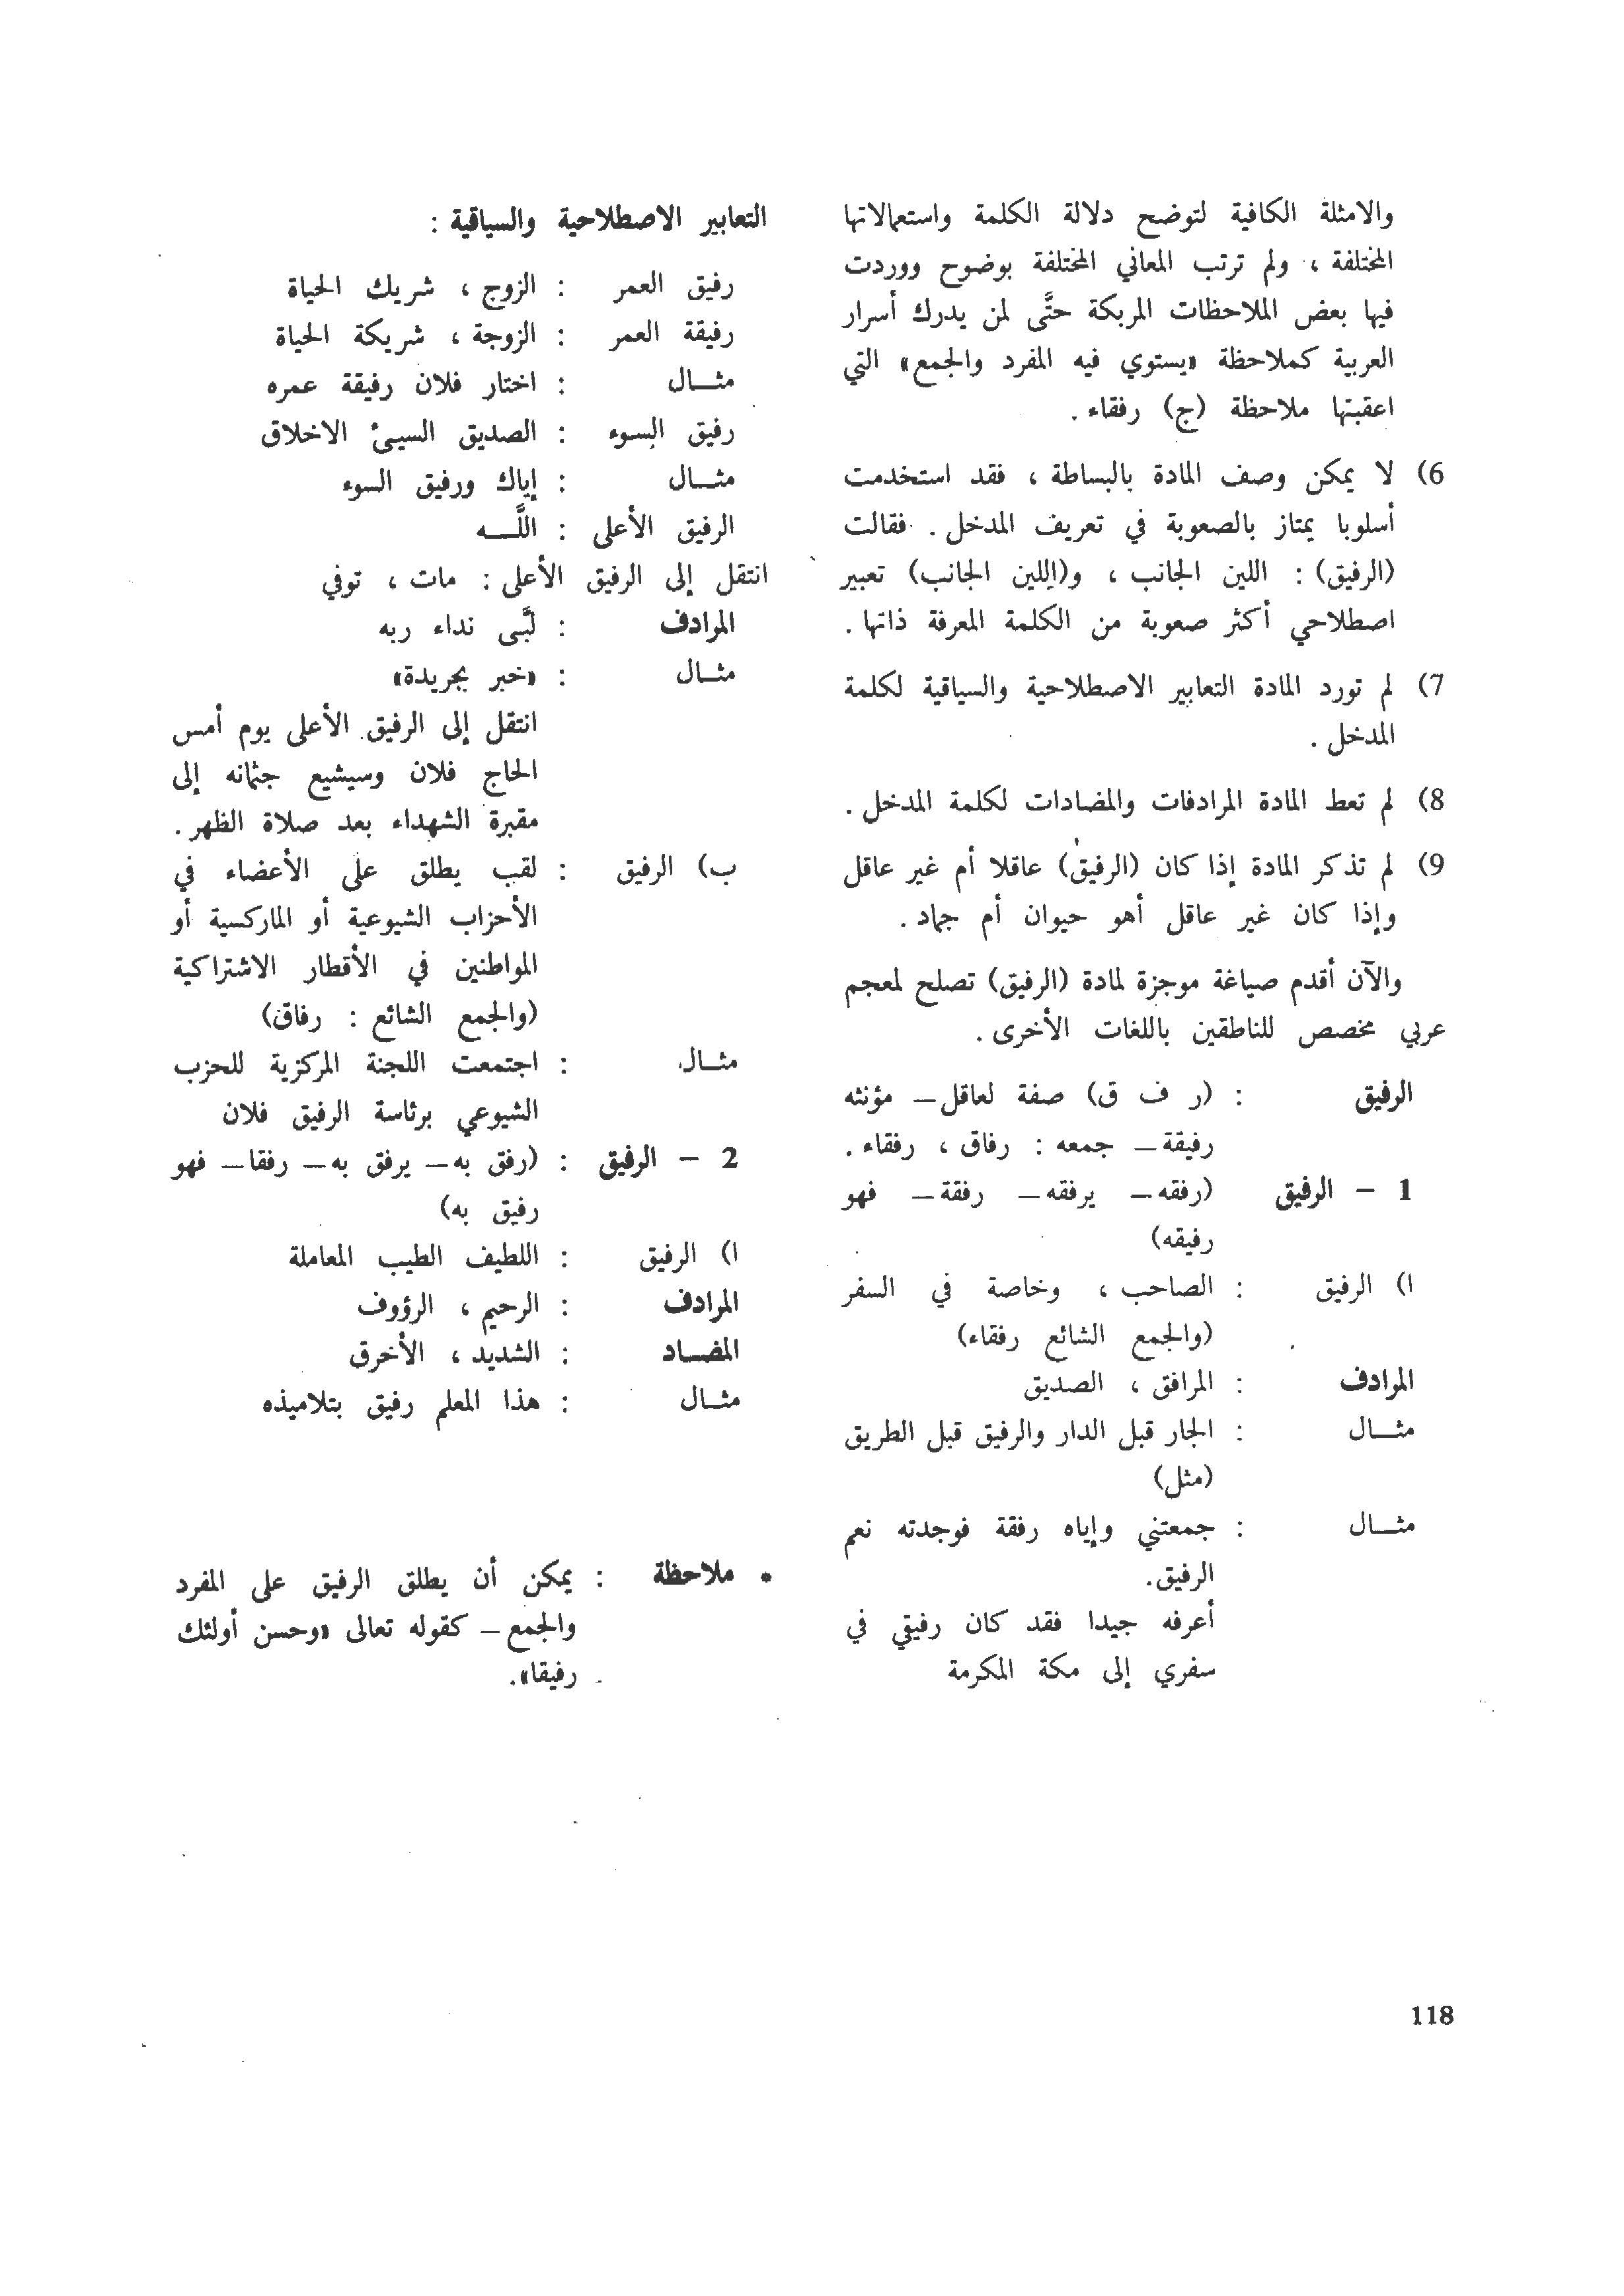 والامثلة الكافية لتوضح دلالة الكلمة واستعمالاتها
المختلفة ، ولم ترتب المعاني المختلفة بوضوح ووردت
فيها بعض الملاحظات المربكة حتَّى لمن يدرك أسرار
العربية كملاحظة «يستوي فيه المفرد والجمع» التي
اعقبتها ملاحظة (ج) رفقاء .
6) لا يمكن وصف المادة بالبساطة ، فقد استخدمت
أسلوبا يمتاز بالصعوبة في تعريف المدخل . فقالت
(الرفيق) : اللين الجانب ، و(اللين الجانب) تعبير
اصطلاحي أكثر صعوبة من الكلمة المعرفة ذاتها .
7) لم تورد المادة التعابير الاصطلاحية والسياقية لكلمة
المدخل .
8) لم تعط المادة المرادفات والمضادات لكلمة المدخل .
9) لم تذكر المادة إذا كان (الرفيق) عاقلا أم غير عاقل
وإذا كان غير عاقل أهو حيوان أم جماد .
والآن أقدم صياغة موجزة لمادة (الرفيق) تصلح لمعجم
عربي مخصص للناطقين باللغات الأخرى .
الرفيق : (ر ف ق) صفة لعاقل— مؤنثه
رفيقة— جمعه : رفاق ، رفقاء .
1 – الرفيق (رفقه— يرفقه— رفقة— فهو
رفيقه)
ا) الرفيق : الصاحب ، وخاصة في السفر
(والجمع الشائع رفقاء)
المرادف : المرافق ، الصديق
مثـــال : الجار قبل الدار والرفيق قبل الطريق
(مثل)
مثـــال : جمعتني وإياه رفقة فوجدته نعم
الرفيق.
أعرفه جيدا فقد كان رفيقي في
سفري إلى مكة المكرمة
التعابير الاصطلاحية والسياقية :
رفيق العمر : الزوج ، شريك الحياة
رفيقة العمر : الزوجة ، شريكة الحياة
مثـــال : اختار فلان رفيقة عمره
رفيق السوء : الصديق السيئ الاخلاق
مثـــال : إياك ورفيق السوء
الرفيق الأعلى : اللَّـــه
انتقل إلى الرفيق الأعلى : مات ، توفي
المرادف : لبَّى نداء ربه
مثـــال : «خبر بجريدة»
انتقل إلى الرفيق الأعلى يوم أمس
الحاج فلان وسيشيع جثمانه إلى
مقبرة الشهداء بعد صلاة الظهر .
ب) الرفيق : لقب يطلق على الأعضاء في
الأحزاب الشيوعية أو الماركسية أو
المواطنين في الأقطار الاشتراكية
(والجمع الشائع : رفاق)
مثـــال : اجتمعت اللجنة المركزية للحزب
الشيوعي برئاسة الرفيق فلان
2 – الرفيق : (رفق به— يرفق به— رفقا— فهو
رفيق به)
ا) الرفيق : اللطيف الطيب المعاملة
المرادف : الرحيم ، الرؤوف
المضـــاد : الشديد ، الأخرق
مثـــال : هذا المعلم رفيق بتلاميذه
* ملاحظة : يمكن أن يطلق الرفيق على المفرد
والجمع— كقوله تعالى «وحسن أولئك
رفيقا».
118